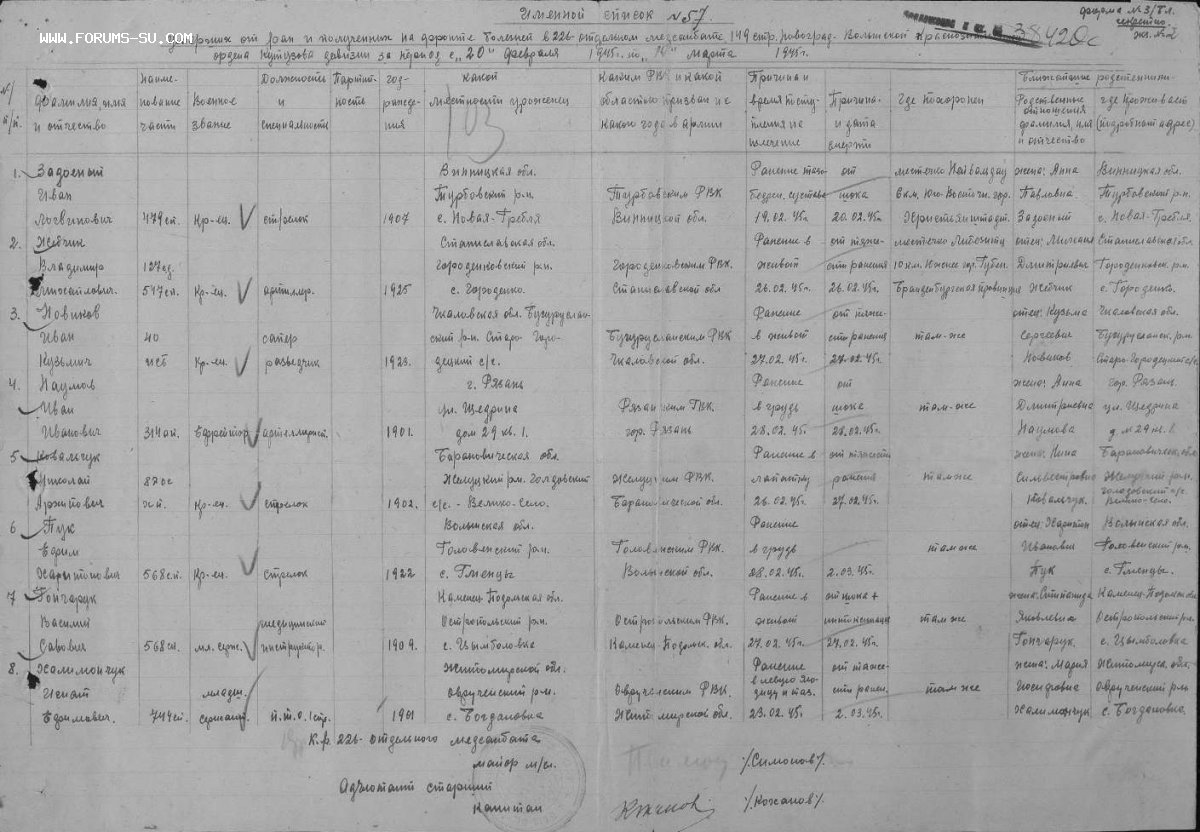 WWW.FORUMS-SU.COM
Именной список № 57
форма № 3/Бл.
секретно
экз. № 2
умерших от ран и полученных на фронте болезней в 226 отдельном медсанбате 149 стр. Новоград-Волынской Краснозн.
38420с
ордена Кутузова дивизии за период с „20“ февраля 1945г. по „10“ марта 1945г.
№/п/п. Фамилия, имя и отчество | Наименование части | Военное звание | Должность и специальность | Партийность | год рождения | какой местности уроженец | Каким РВК и какой областью призван и с какого года в армии | Причина и время поступления на излечение | Причина и дата смерти | Где похоронен | Ближайшие родственники
Родственные отношения фамилия, имя и отчество | где проживает (подробный адрес)
103
1. Задоеный Винницкая обл. Ранение от местечко жена: Анна Винницкая обл.
Иван Турбовский р-н Турбовским РВК бедра, сустава шока 8 км. Юго-Восточн. гор. Павловна Турбовский р-н.
Логвинович 479 сп. Кр-ец. стрелок 1907 с. Новая-Гребля Винницкой обл. 19.02.45г. 20.02.45г. Христианштадт. Задоеный с. Новая-Гребля.
2. Жебчик Станиславская обл. Ранение в от тяже- местечко отец: Михаил Станиславская обл.
Владимир 127 сд. Городенковский р-н. Городенковским РВК. живот сти ранения 10 км. Южнее гор. Губен. Дмитриевич Городенковск. р-н
Михайлович. 547 сп. Кр-ец. артиллер. 1925 с. Городенко. Станиславской обл 26.02.45г. 26.02.45г. Бранденбургская провинция Жебчик с. Городенко.
3. Новиков Чкаловская обл. Бугуруслан- Ранение от тяже- отец: Кузьма Чкаловская обл.
Иван 40 сапер ский р-н. Старо-Горо- Бугурусланским РВК в живот сти ранения там-же Сергеевич Бугурусланск. р-н
Кузьмич исб Кр-ец. разведчик 1923. децкий с/с. Чкаловской обл. 27.02.45г. 27.02.45г. Новиков Старо-Городецкий с/с
4. Наумов г. Рязань Ранение от жена: Анна гор. Рязань
Иван ул. Щедрина Рязанским ГВК. в грудь шока там-же Дмитриевна ул. Щедрина
Иванович 314 ап. Ефрейтор артиллерист. 1901. дом 29 кв. 1. гор. Рязань 28.02.45г. 28.02.45г. Наумова д. № 29 кв. 1.
5 Ковальчук Барановическая обл. Ранение в от тяжести жена: Нина Барановическ. обл.
Николай 87 ос Желудский р-н. Голдовский Желудским РВК. лопатку ранения там же Сильвестровна Желудский р-н.
Архипович Кр-ец. стрелок 1902. с/с. - Велико-Село. Барановической обл. 26.02.45г. 27.02.45г. Ковальчук. Голдовский с/с. Велико-село.
6 Пук Волынская обл. Ранение отец: Харитон Волынская обл.
Ефим Головенский р-н. Головенским РВК. в грудь там же Иванович Головенский р-н.
Харитонович 568 сп. Кр-ец. стрелок 1922 с. Гменцы Волынской обл. 28.02.45г. 2.03.45г. Пук с. Гменцы.
7 Гончарук Каменец-Подольская обл. Ранение в от шока + жена: Степанида Каменец-Подольск обл
Василий медицинский Остропольский р-н. Остропольским РВК. живот интоксикация там же Яковлевна Остропольский р-н
Савович 568 сп. мл. серж. инструктор. 1909. с. Цымболовка Каменец-Подольск. обл. 27.02.45г. 27.02.45г. Гончарук. с. Цымболовка
8. Халимончук Житомирской обл. Ранение от тяже- жена: Мария Житомирск. обл.
Игнат младш. Овручский р-н. Овручским РВК. в левую яго- дицу и таз. сти ранен. там же Иосифовна Овручский р-н
Ефимович. 744 сп. сержант П.Т.О. 1901 с. Богдановка Житомирской обл. 23.02.45г. 2.03.45г. Халимончук с. Богдановка.
К-р. 226-отдельного медсанбата
майор м/сл. /Симонов/.
Адъютант старший
Капитан /Кожанов/.